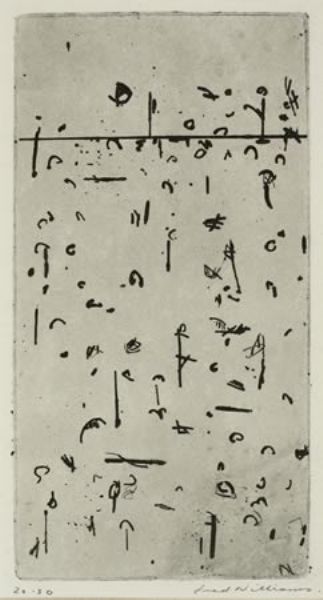 20-30 Fred Williams